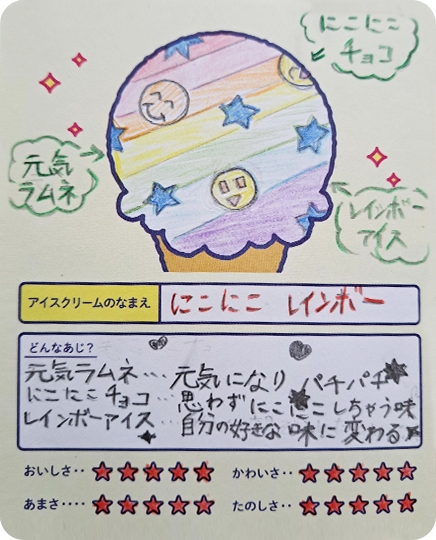 にこにこ
チョコ
元気
ラムネ
レインボー
アイス
アイスクリームのなまえ
にこにこ レインボー
どんなあじ?
元気ラムネ… 元気になり パチパチ
にこにこチョコ… 思わずにこにこしちゃう味
レインボーアイス… 自分の好きな味に変わる
おいしさ‥
かわいさ‥
あまさ‥‥
たのしさ‥